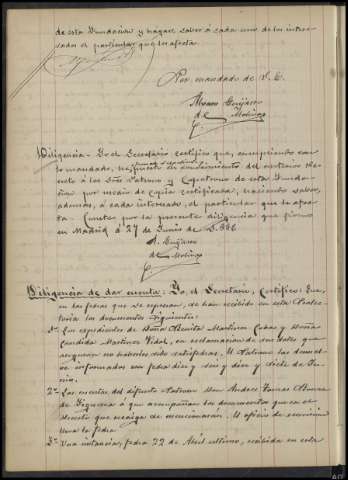 de esta Fundacion y hagase saber á cada uno de los intere-
sados el particular que les afecta.
Por mandado de S. E.
Alvaro Guijarro
de Molina
Diligencia - Yo el Secretario certifico que, cumpliendo con
lo mandado, he puesto en conocimiento del anterior De-
creto á los Sres Patrono y Copatrono de esta Funda-
cion por medio de copia certificada, haciendo saber,
además, á cada interesado, el particular que le afec-
ta. Conste por la presente diligencia que firmo
en Madrid á 27 de Junio de 1.886
A. Guijarro
de Molina
Diligencia de dar cuenta: Yo, el Secretario, Certifico: Que,
en las fechas que se expresan, se han recibido en esta Protec-
toria los documentos siguientes:
1º Los expedientes de Doña Benita Martinez y Doña
Candida Martinez Vidal, en reclamacion de sus dotes que
aseguran no haberles sido satisfechas. El Patrono las devuel-
ve informadas con fecha diez y seis y diez y siete de Ju-
nio.
2º Las cuentas del difunto Patrono Don Andrés Tomas
de Figueroa á que acompañan los documentos que en el
decreto que recaiga se mencionarán. El oficio de remision
lleva la fecha
3º Una instancia, fecha 22 de Abril ultimo, recibida en esta